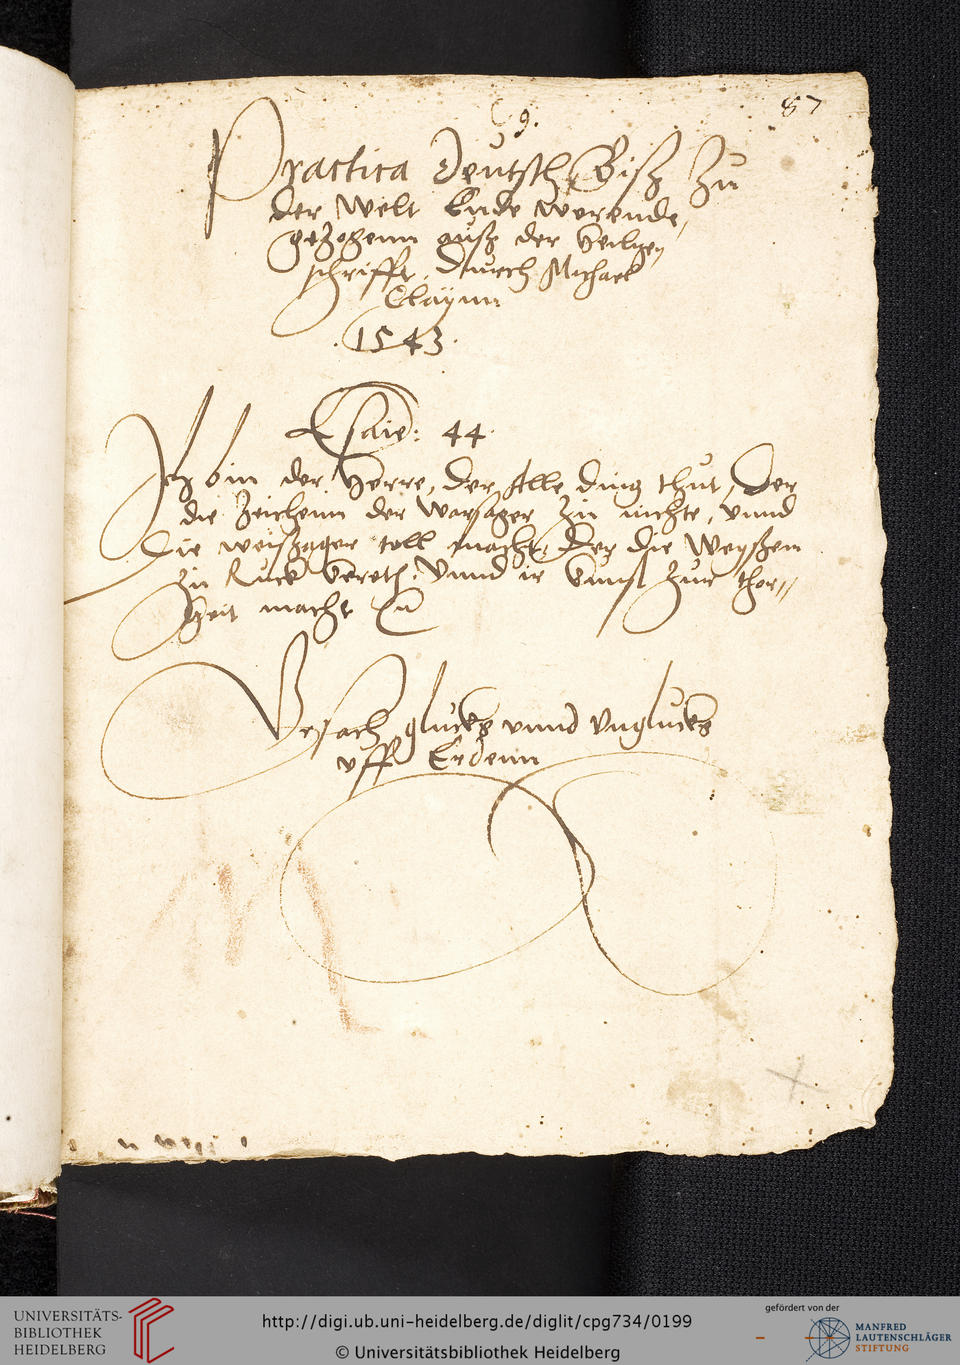 9.
87
Practica Deutsch Bisz Zu
der Welt Ende werende,
gezogenn ausz der Heilgen
schrifft, durch Michael
Claÿnn
.1543.
Esaie: 44.
Ich bin der Herre, der Alle ding thut, Der
die Zeichenn der Warsager zu nichte, vnnd
die weiszager toll macht, Der die Weyszen
zu Ruck kereth, Vnnd ir kunst zur thor,,
heit macht
Vrsach glucks vnnd vnglucks
vff Erdenn
UNIVERSITÄTS-
BIBLIOTHEK
HEIDELBERG
http://digi.ub.uni-heidelberg.de/diglit/cpg734/0199
© Universitätsbibliothek Heidelberg
gefördert von der
MANFRED
LAUTENSCHLÄGER
STIFTUNG